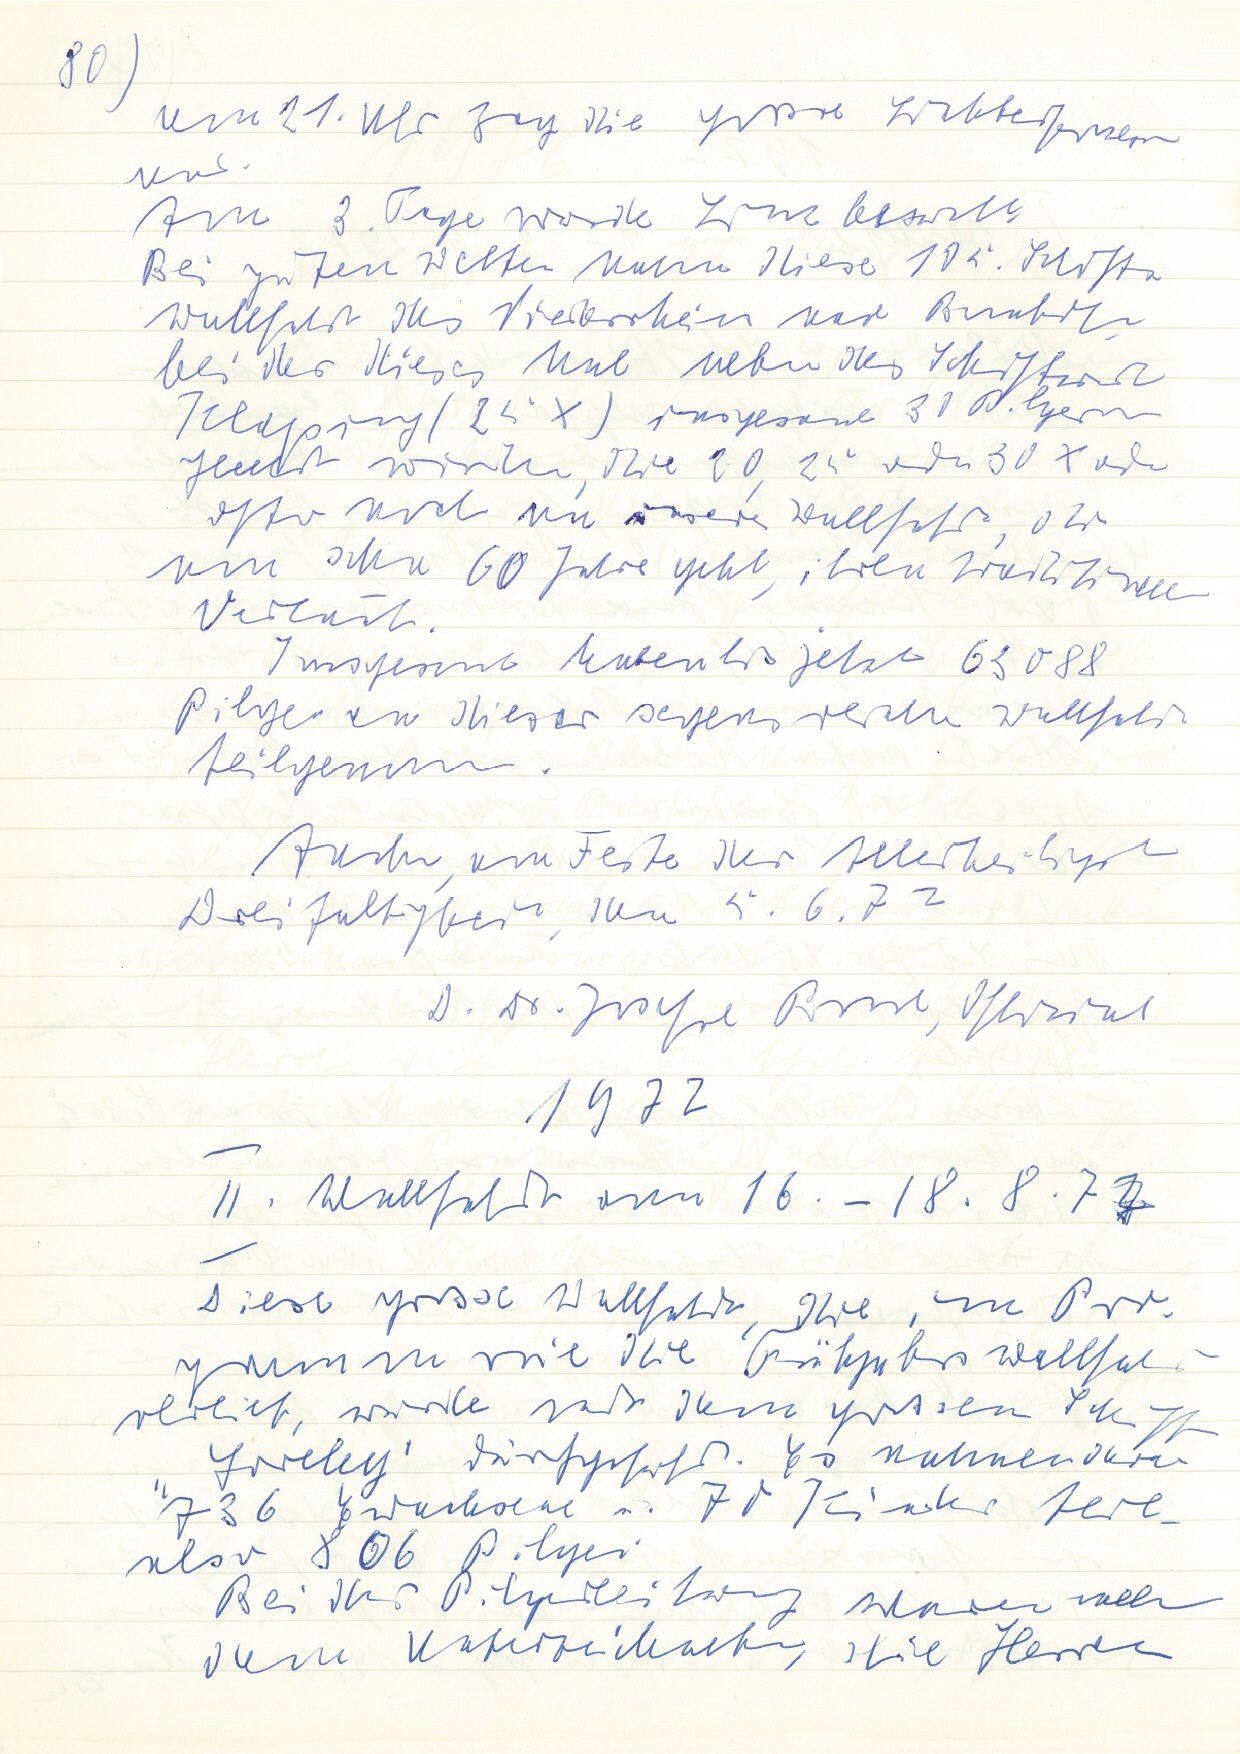 80)
um 21. Uhr zog die grosse Lichterprozession
aus.
Am 3. Tage wurde Linz besucht
Bei gutem Wetter nahm diese 105. Schiffs
wallfahrt des Niederrheins nach Bornhofen
bei der dieses Mal neben der Schiffswirt
(25 X) insgesamt 30 Pilgern
geehrt wurden, die 20, 25 oder 30 X oder
öfter noch an unserer Wallfahrt, die
nun schon 60 Jahre geht, ihren traditionellen
Verlauf.
Insgesamt haben bis jetzt 63088
Pilger an dieser segensreichen Wallfahrt
teilgenommen.
Aachen, am Feste der Allerheiligst
Dreifaltigkeit, den 5. 6. 72
D. Dr. Josef Offizial
1972
II. Wallfahrt vom 16. – 18. 8. 72
Diese grosse Wallfahrt, die im Pro-
gramm wie die Frühjahrswallfahrt
verlief, wurde mit dem grossen Schiff
"Loreley" durchgeführt. Es nahmen daran
736 Erwachsene u. 70 Kinder teil_
also 806 Pilger
Bei der Pilgerleitung waren neben
dem Unterzeichneten, die Herren